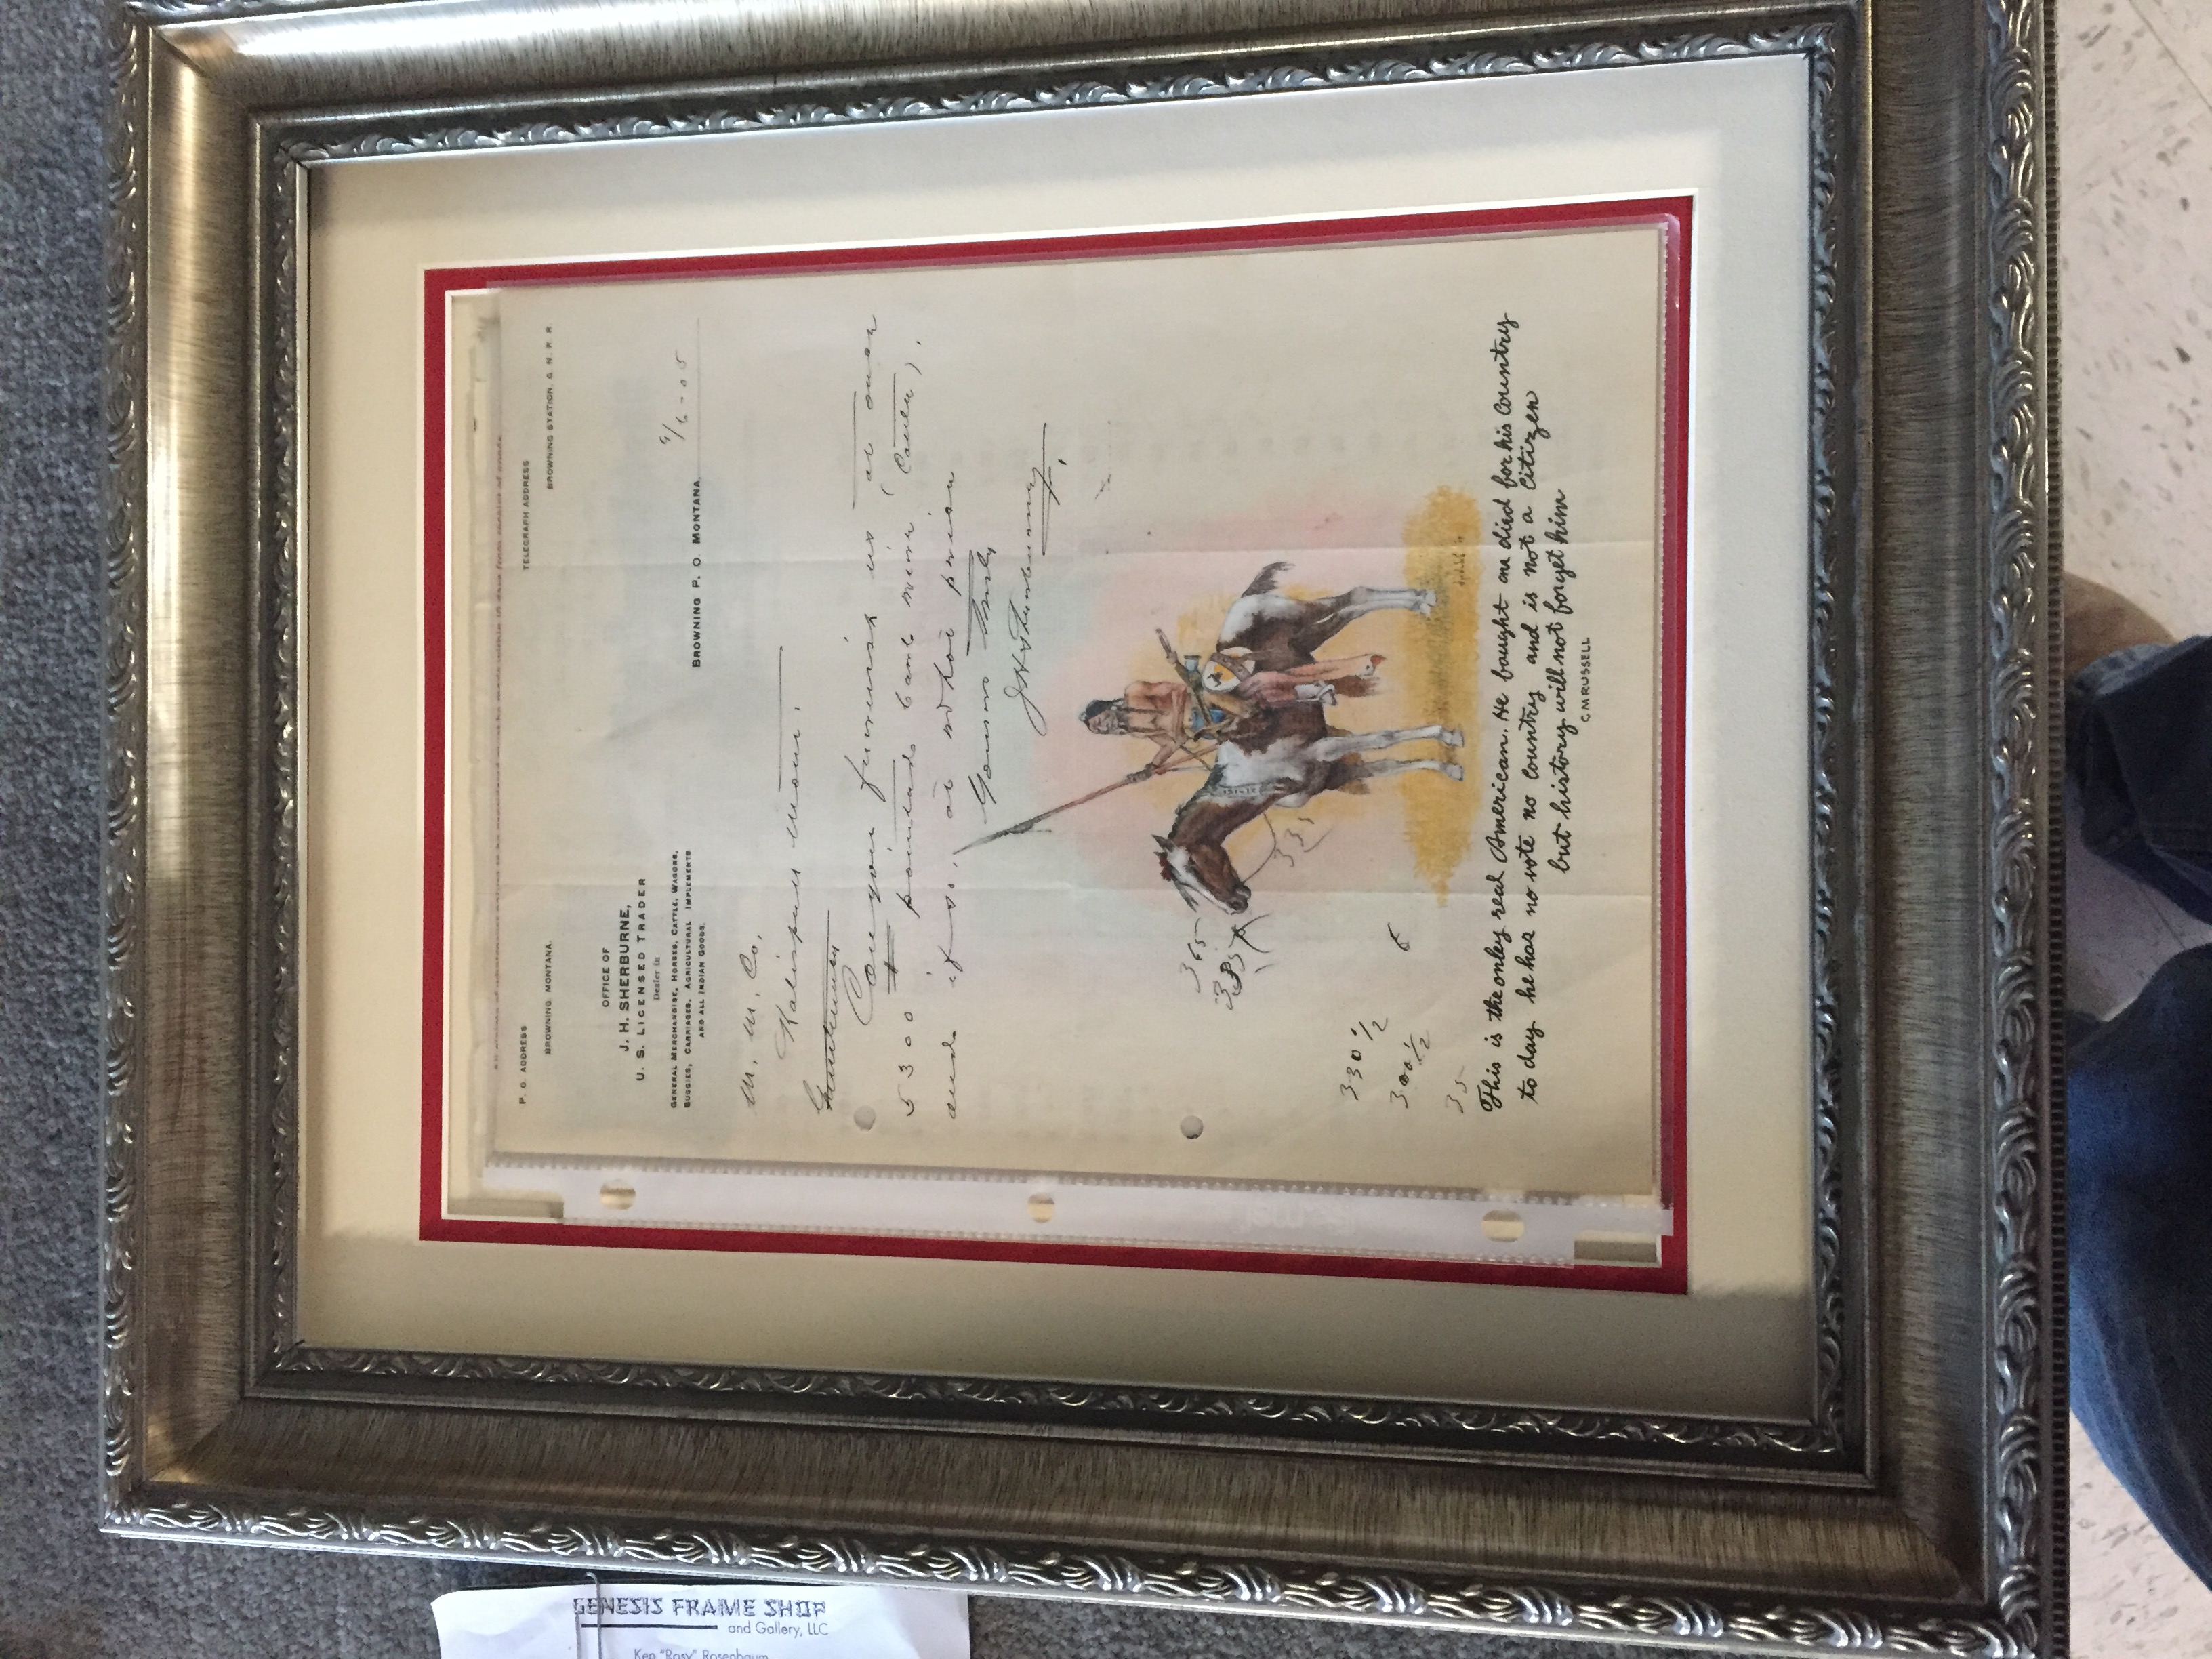 All claims of whatsoever nature to be considered must be made within 10 days from receipt of goods
P. O. ADDRESS
BROWNING, MONTANA.
TELEGRAPH ADDRESS
BROWNING STATION, G. N. R. R.
OFFICE OF
J. H. SHERBURNE,
U. S. LICENSED TRADER
Dealer in
GENERAL MERCHANDISE, HORSES, CATTLE, WAGONS,
BUGGIES, CARRIAGES, AGRICULTURAL IMPLEMENTS
AND ALL INDIAN GOODS.
BROWNING P. O. MONTANA, 9/6-05
M. M. Co.
Kalispell Mont.
Gentlemen
Can you furnish us at once
5300 # painted barb wire (Cattle),
and if so, at what price
Yours Truly
J H Sherburne
365
335
335
330 1/2
300 1/2
35
This is the onley real American. He fought an died for his country
to day he has no vote no country and is not a citizen
but history will not forget him
C M RUSSELL
GENESIS FRAME SHOP
and Gallery, LLC
Ken "Rosy" Rosenbaum